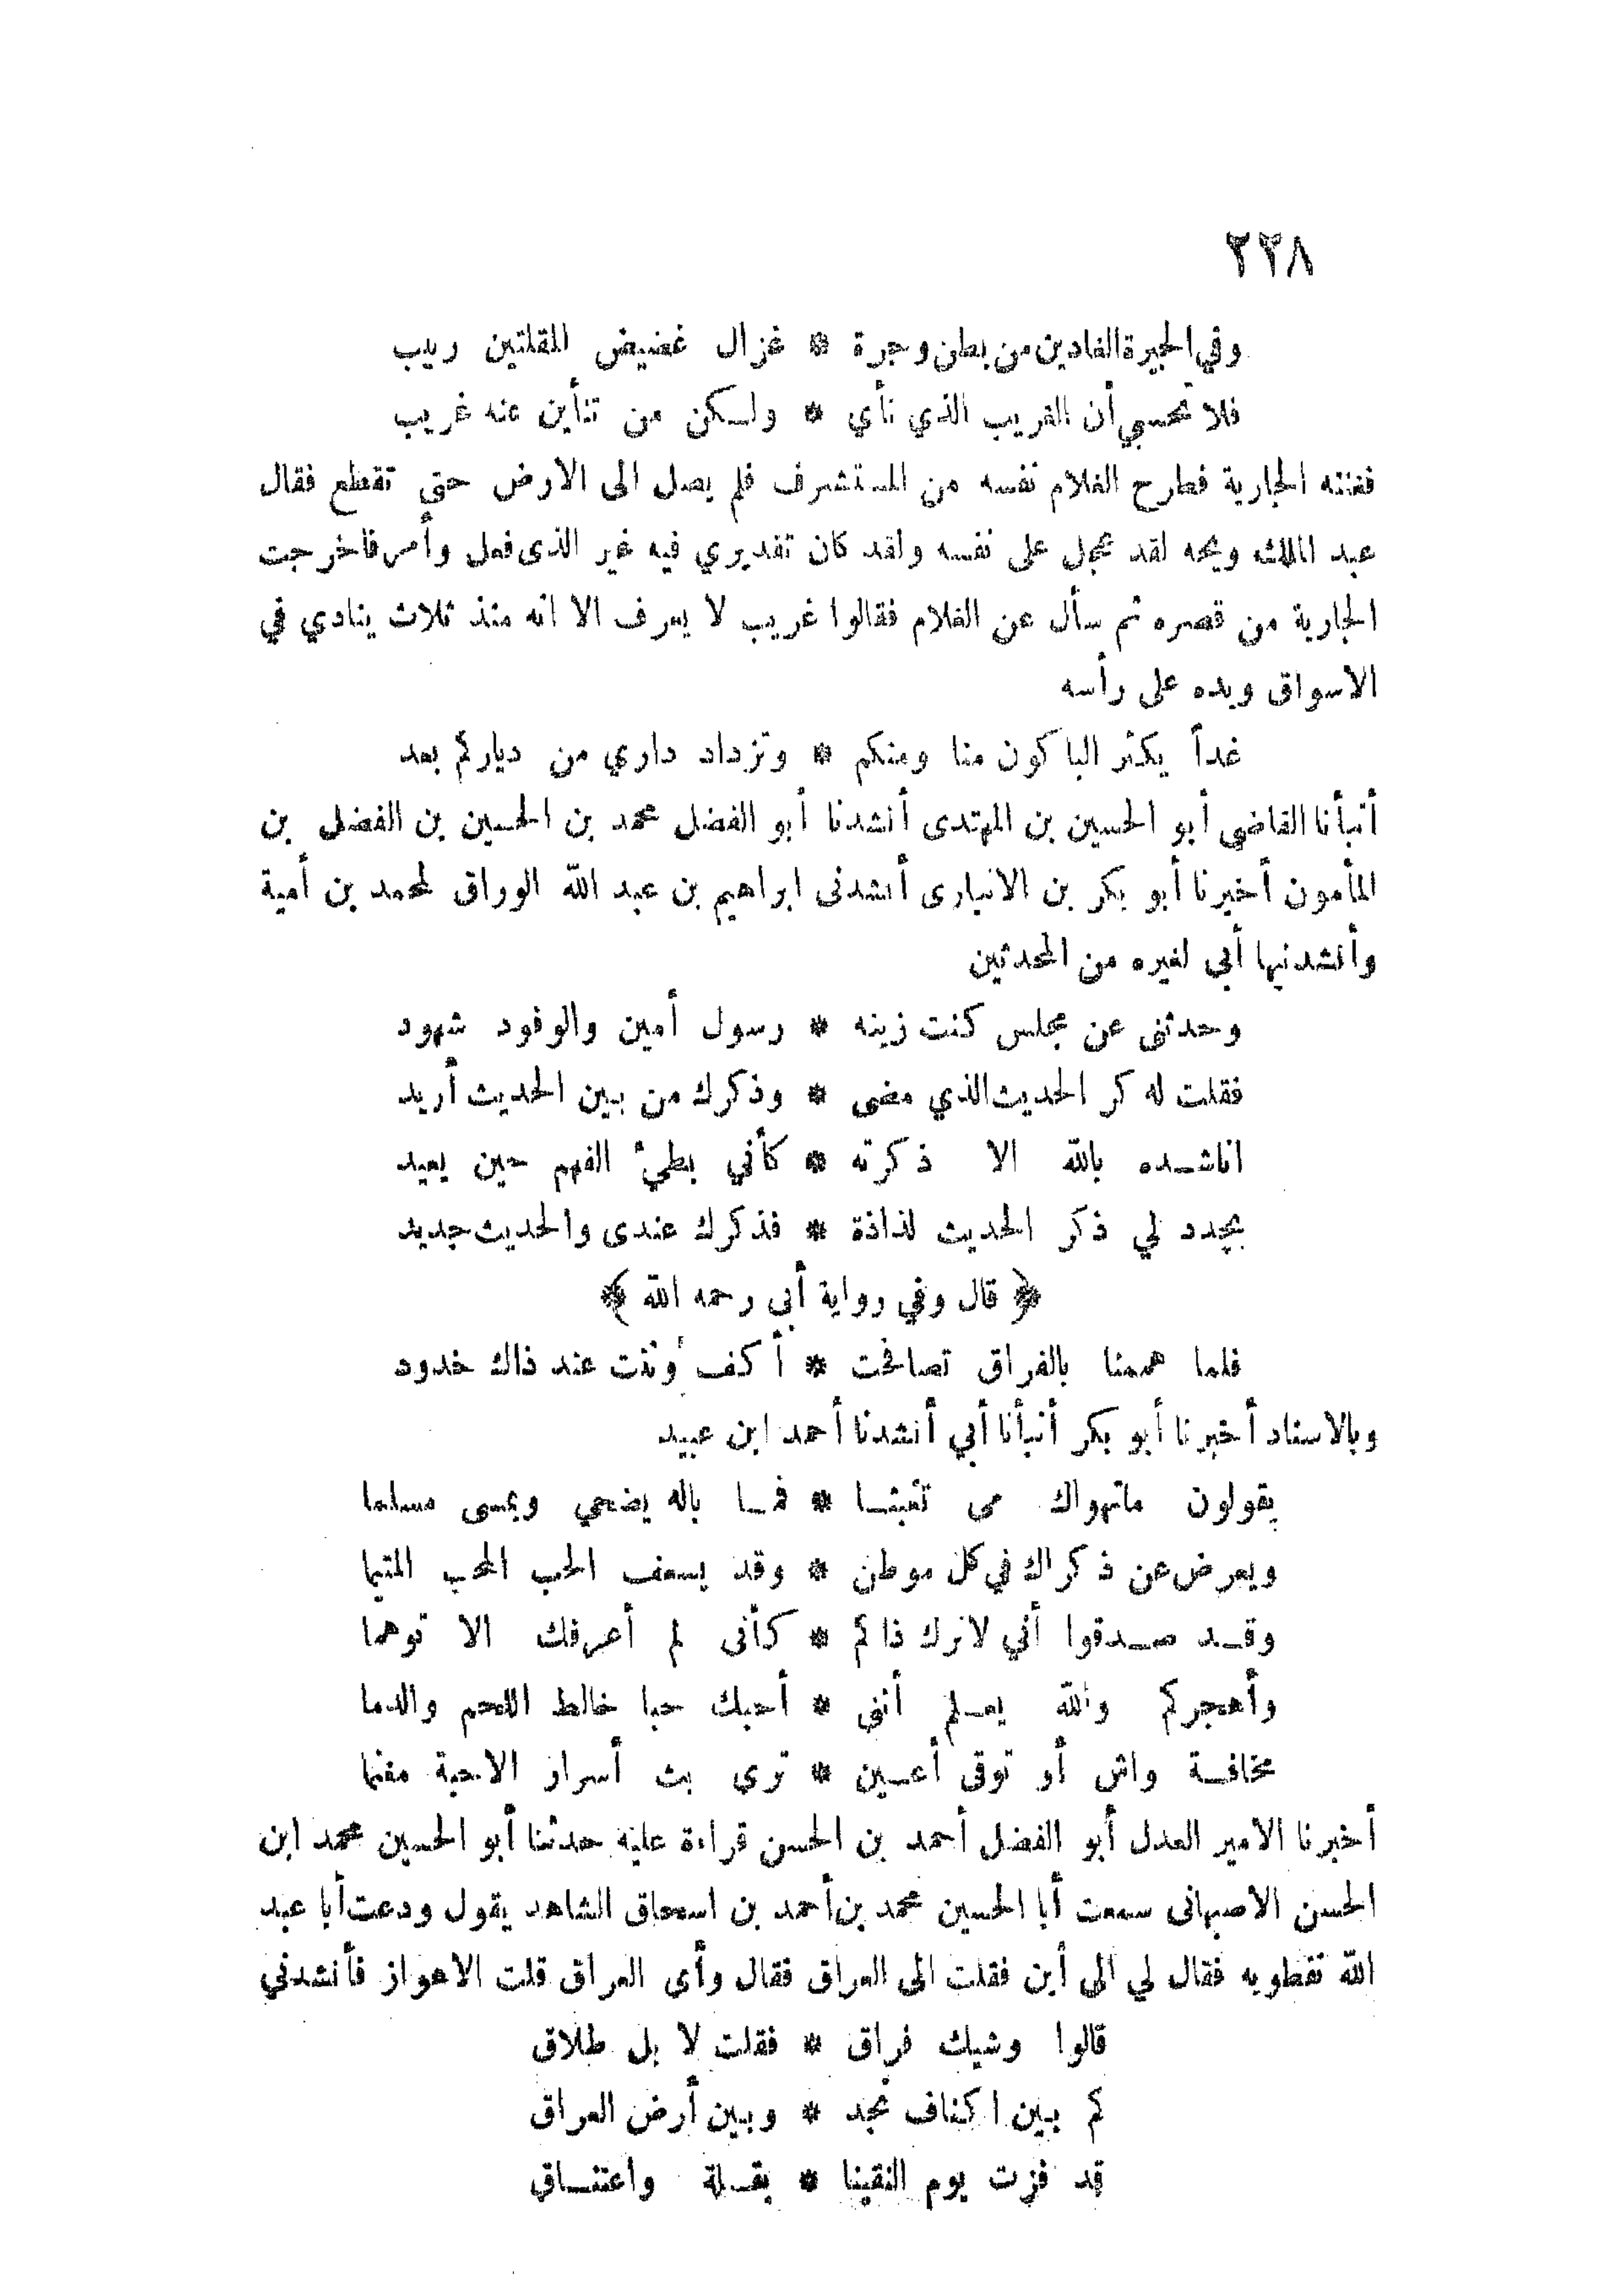 ٢٢٨
وفي الجيرة الغادين من بطن وجرة * غزال غضيض المقلتين ربيب
فلا تحسبي أن الغريب الذي نأي * ولكن من تنأين عنه غريب
فغنته الجارية فطرح الغلام نفسه من المستشرف فلم يصل الى الارض حتى تقطع فقال
عبد الملك ويحه لقد عجل على نفسه ولقد كان تقديري فيه غير الذى فعل وأمر فاخرجت
الجارية من قصره ثم سأل عن الغلام فقالوا غريب لا يعرف الا انه منذ ثلاث ينادي في
الاسواق ويده على رأسه
غداً يكثر الباكون منا ومنكم * وتزداد داري من دياركم بعد
أنبأنا القاضى أبو الحسين بن المهتدى أنشدنا أبو الفضل محمد بن الحسين بن الفضل بن
المأمون أخبرنا أبو بكر بن الانبارى أنشدنى ابراهيم بن عبد الله الوراق لمحمد بن أمية
وأنشدنيها أبي لغيره من المحدثين
وحدثنى عن مجلس كنت زينه * رسول أمين والوفود شهود
فقلت له كر الحديث الذي مضى * وذكرك من بين الحديث أريد
اناشده بالله الا ذكرته * كأني بطئ الفهم حين يعيد
يجدد لي ذكر الحديث لذاذة * فذكرك عندى والحديث جديد
﴿ قال وفي رواية أبى رحمه الله ﴾
فلما هممنا بالفراق تصافحت * أكف وُنذت عند ذاك خدود
وبالاسناد أخبرنا أبو بكر أنبأنا أبي أنشدنا أحمد ابن عبيد
يقولون ماتهواك مى تغبشا * فما باله يضحي ويمسى مسلما
ويعرض عن ذكراك في كل موطن * وقد يسعف الحب المحب المتيما
وقد صدقوا أني لاترك ذاكم * كأنى لم أعرفك الا توهما
وأهجركم والله يعلم أننى * أحبك حبا خالط اللحم والدما
مخافة واش أو توقى أعين * ترى بث أسرار الاحبة مغنما
أخبرنا الامير العدل أبو الفضل أحمد بن الحسن قراءة عليه حدثنا أبو الحسين محمد ابن
الحسن الاصبهانى سمعت أبا الحسين محمد بن أحمد بن اسحاق الشاهد يقول ودعت أبا عبد
الله نفطويه فقال لي الى أين فقلت الى العراق فقال وأى العراق قلت الاهواز فأنشدني
قالوا وشيك فراق * فقلت لا بل طلاق
كم بين اكناف نجد * وبين أرض العراق
قد فزت يوم التقينا * بقبلة واعتناق